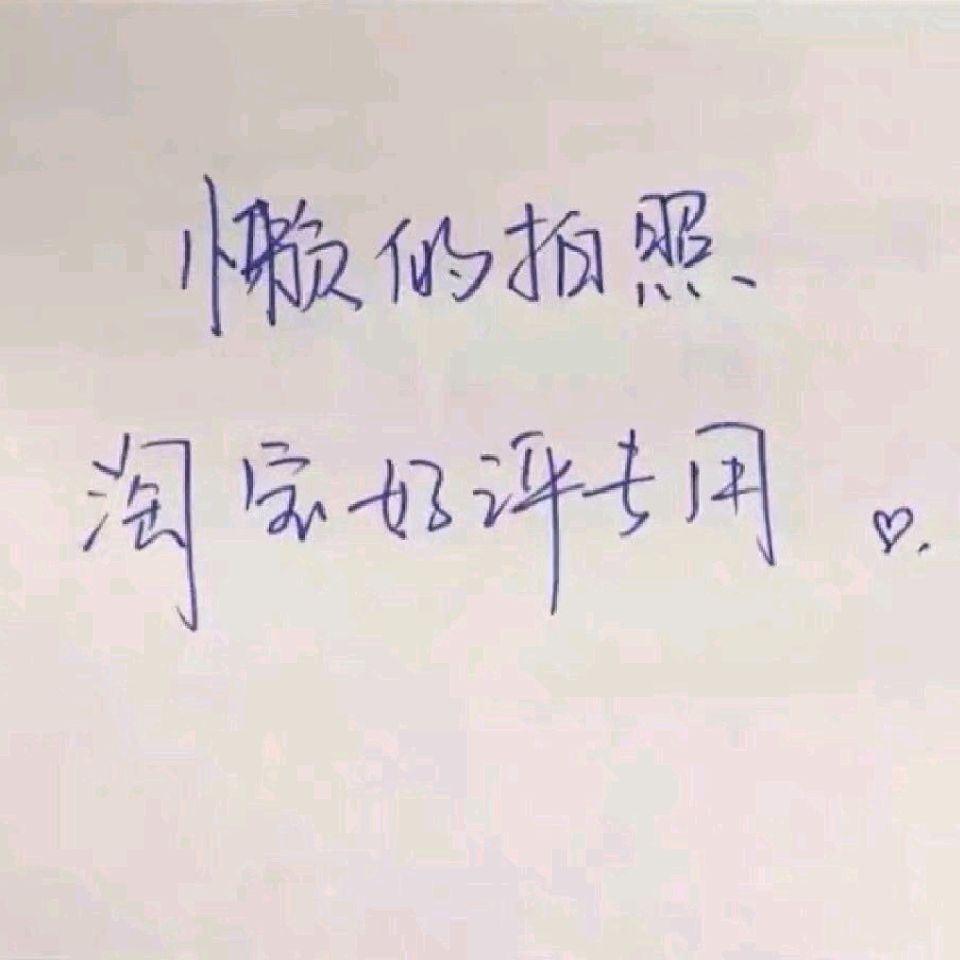 懒的拍照、
淘宝好评专用♡.